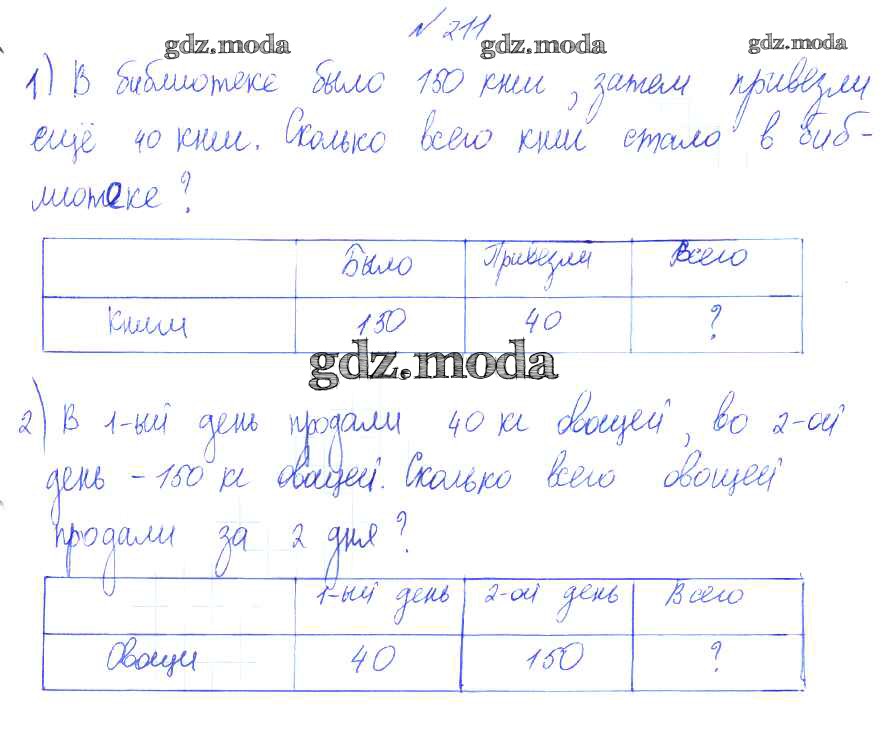 № 211
gdz.moda gdz.moda gdz.moda
1) В библиотеке было 150 книг, затем привезли
ещё 40 книг. Сколько всего книг стало в биб-
лиотеке?
Было Привезли Всего
Книги 150 40 ?
gdz.moda
2) В 1-ый день продали 40 кг овощей, во 2-ой
день - 150 кг овощей. Сколько всего овощей
продали за 2 дня?
1-ый день 2-ой день Всего
Овощи 40 150 ?